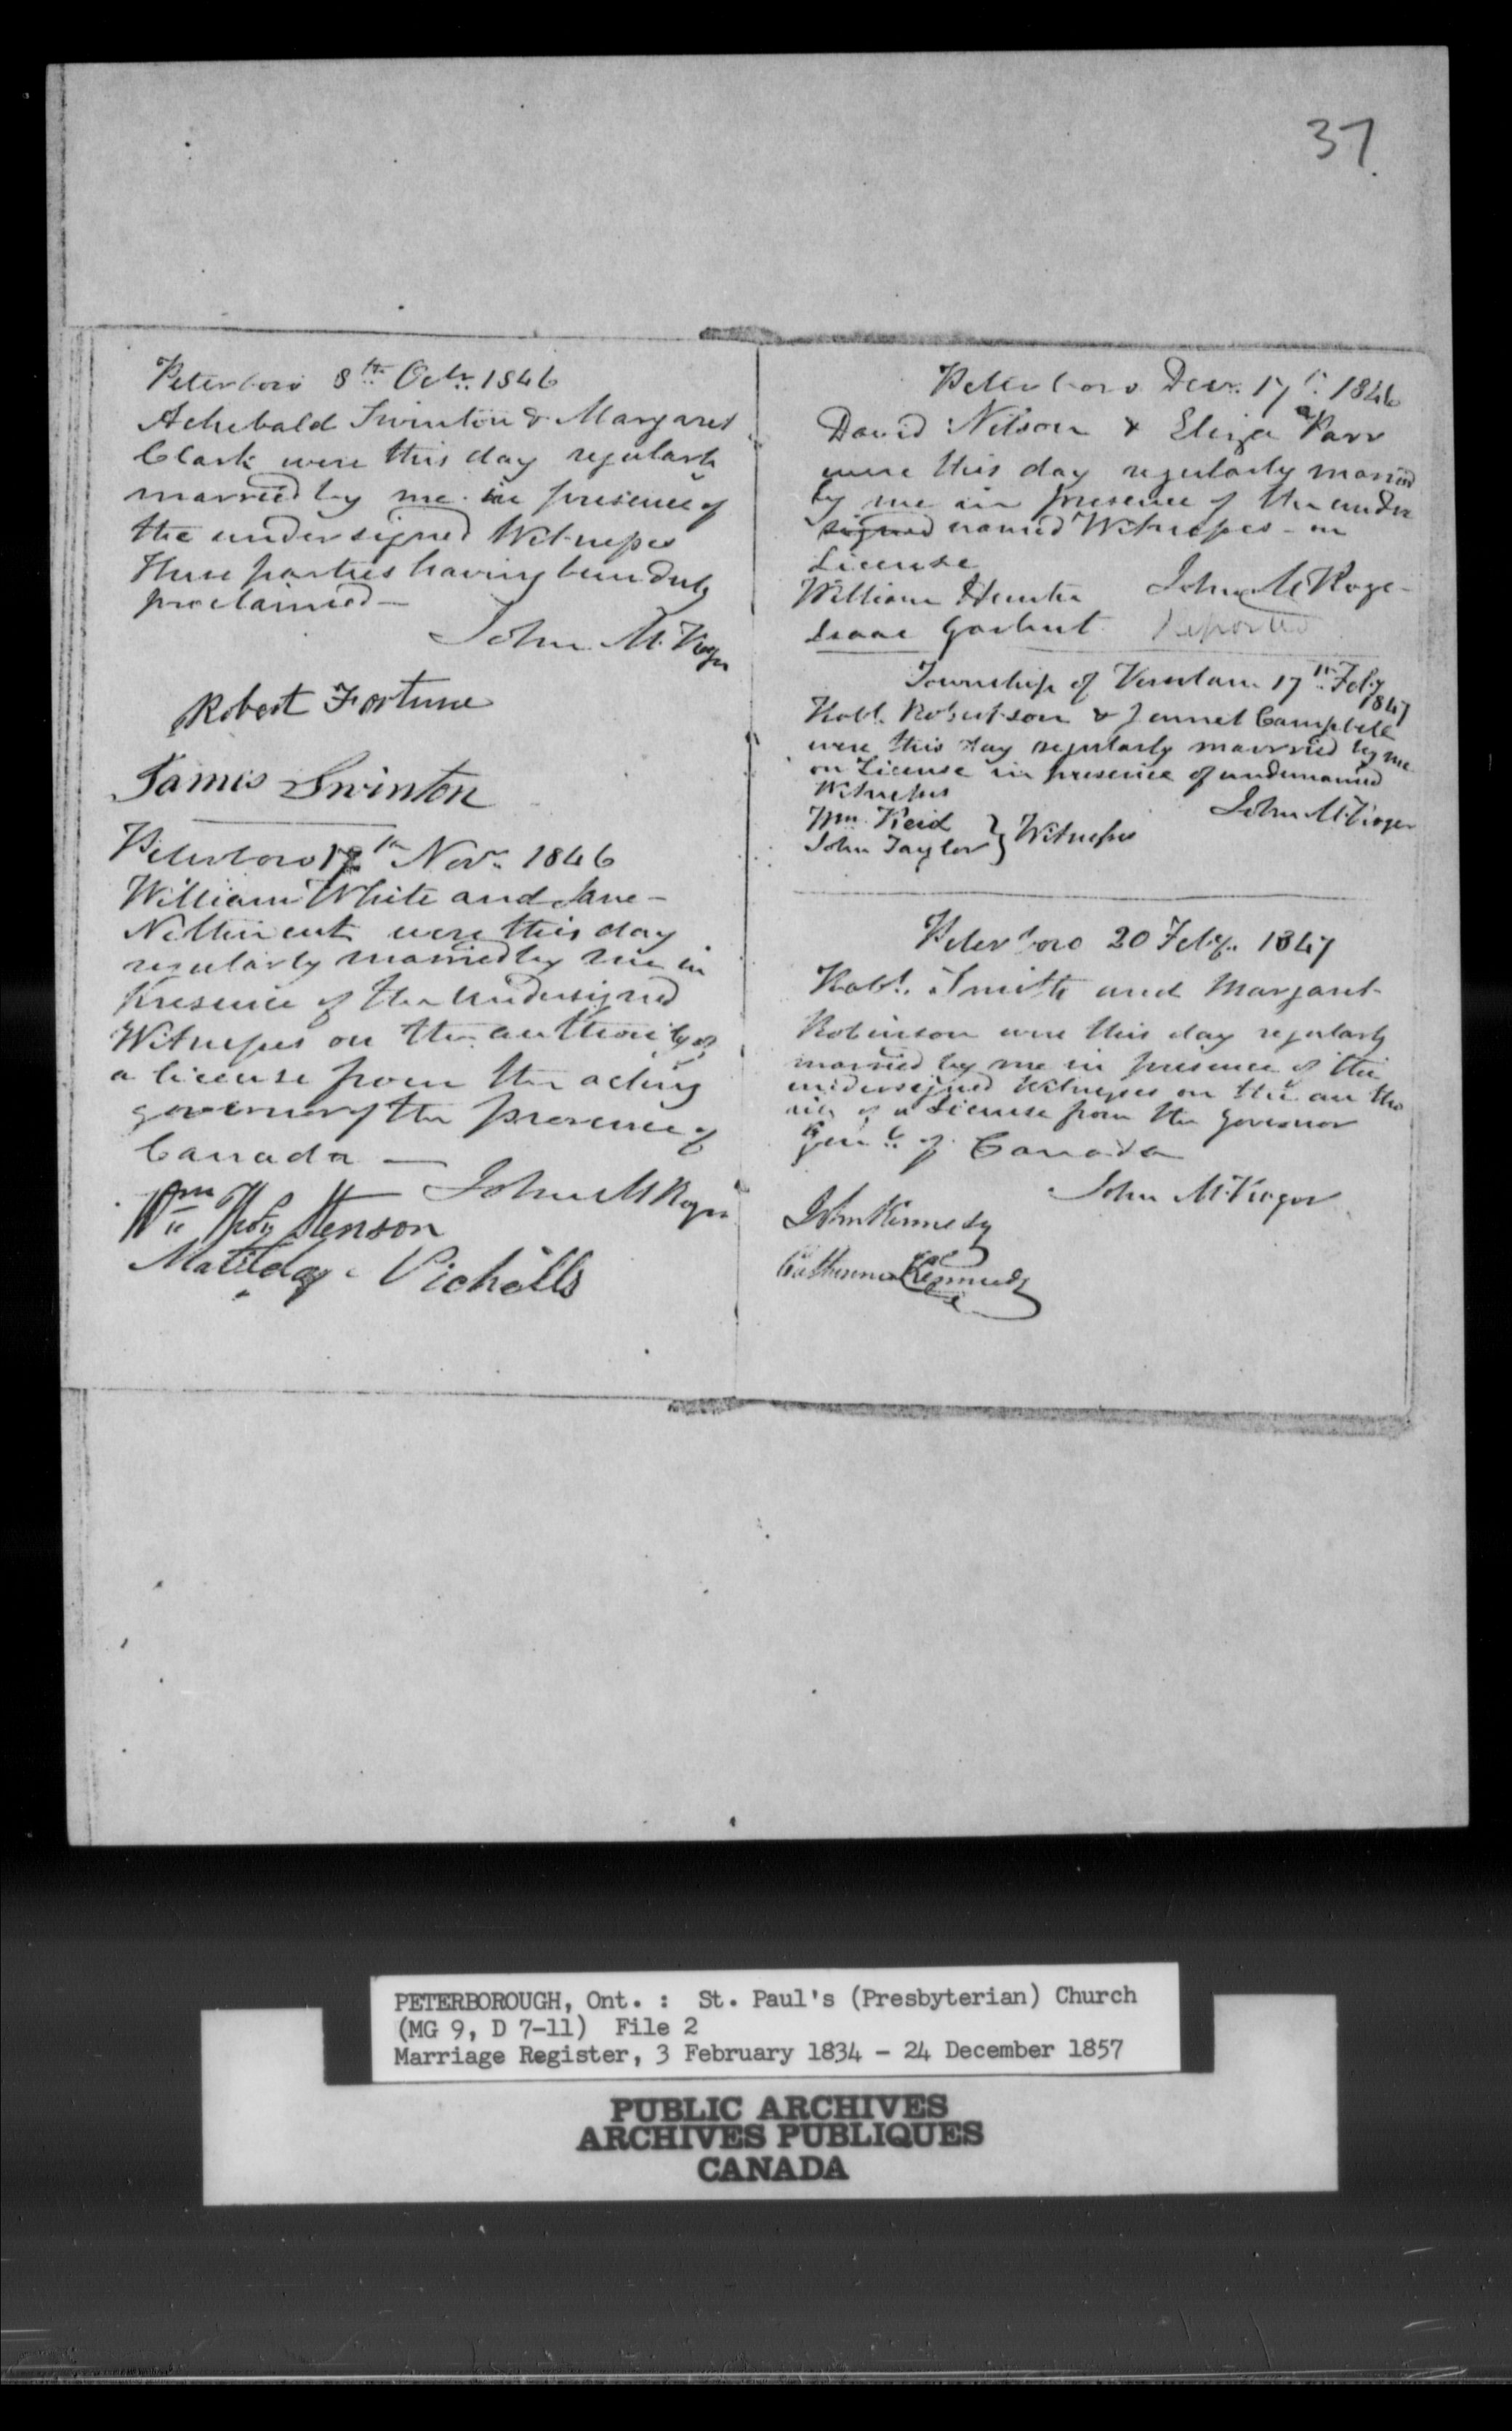 37
Peterboro 8th Octr. 1846
Achibald Swinton & Margaret
Clark were this day regularly
married by me in presence of
the undersigned Witnesses
These parties having been duly
proclaimed—
John M. Roger
Robert Fortune
James Swinton
Peterboro 17th Novr. 1846
William White and Jane
were this day
regularly married by me in
Presence of the Undersigned
Witnesses on the authority of
a license from the acting
governor of the provence of
Canada —
John M Roger
Wm Stenson
Matilda Nicholls
Peterboro Decr. 17th 1846
David Nilson & Eliza Parr
were this day regularly married
by me in presence of the under
signed named Witnesses - on
License
William Hunter John M Roge
Isaac Garbut Reported
Township of Verulam 17th Feby
1847
Robt. Robertson & Jennet Campbell
were this day regularly married by me
on License in presence of undernamed
Witnesses
John M. Roger
Wm. Reid
John Taylor } Witnesses
Peterboro 20 Feby. 1847
Robt. Smith and Margaret
Robinson were this day regularly
married by me in presence of the
undersigned Witnesses on the autho
rity of a License from the Governor
Genl. of Canada
John M. Roger
John Kennedy
Catherine Kennedy
PETERBOROUGH, Ont. : St. Paul's (Presbyterian) Church
(MG 9, D 7-11) File 2
Marriage Register, 3 February 1834 - 24 December 1857
PUBLIC ARCHIVES
ARCHIVES PUBLIQUES
CANADA